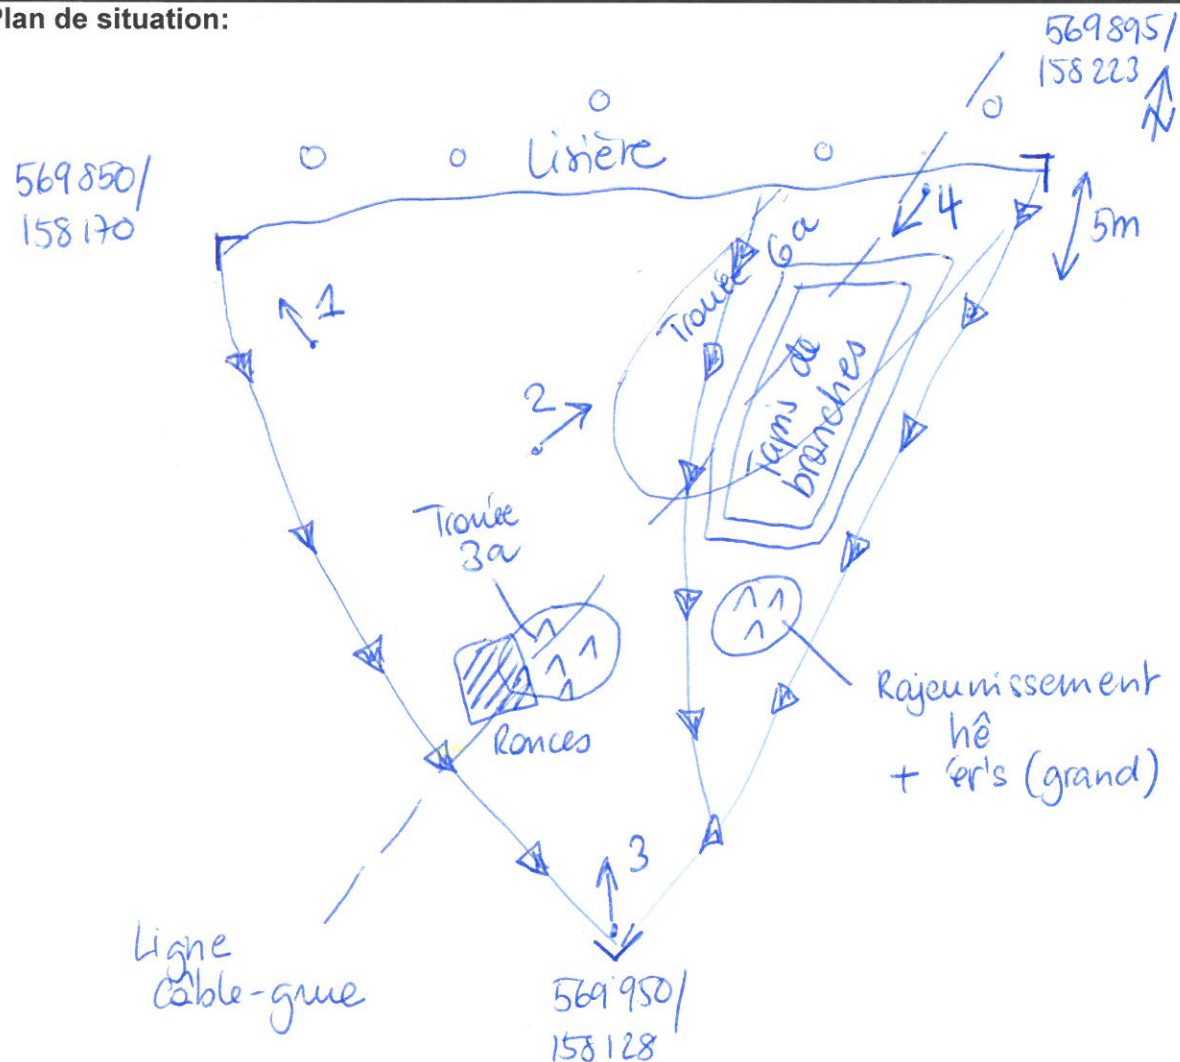 Plan de situation:
569895/
158223
N
Lisière
569850/
158170
4
5m
1
Trouée 6a
2
Tapis de
branches
Trouée
3a
Ronces
Rajeunissement
hê
+ ér's (grand)
3
Ligne
câble-grue
569950/
158128